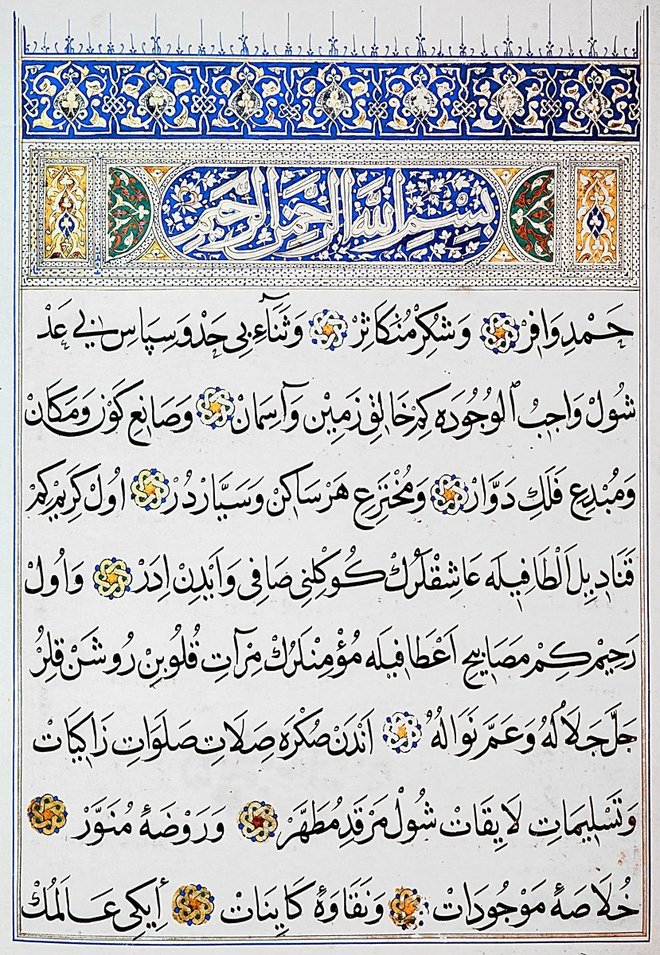 بسم الله الرحمن الرحيم
حَمْدِ وَافِرْ وَشُكْرِ مُتَكَاثِرْ وَثَنَاءِ بِى حَدْ وَسِپَاسِ بِى عَدْ
شُولْ وَاجِبُ ٱلْوُجُودَه كِمْ خَالِقِ زَمِينْ وَآسِمَانْ وَصَانِعِ كَوْنْ وَمَكَانْ
وَمُبْدِعِ فَلَكِ دَوَّارْ وَمُخْتَرِعِ هَرْ سَاكِنْ وَسَيَّارْدُرْ اُولْ كَرِيمْ كِمْ
قَنَادِيلِ اَلْطَافِيلَه عَاشِقْلَرُكْ كُوكُلِنِى صَافِى وَآبَدَنْ اِدَرْ وَاُولْ
رَحِيمْ كِمْ مَصَابِيحِ اَعْطَافِيلَه مُؤْمِنْلَرُكْ مِرْآتِ قُلُوبِنْ رُوشَنْ قِلُرْ
جَلَّ جَلَالُهُ وَعَمَّ نَوَالُهُ اَنْدَنْ صُكْرَه صِلَاتِ صَلَوَاتِ زَاكِيَاتْ
وَتَسْلِيمَاتِ لَايِقَاتْ شُولْ مَرْقَدِ مُطَهَّرْ وَرَوْضَهٔ مُنَوَّرْ
خُلَاصَهٔ مَوْجُودَاتْ وَنَقَاوَهٔ كَايِنَاتْ اِيكِى عَالَمُكْ